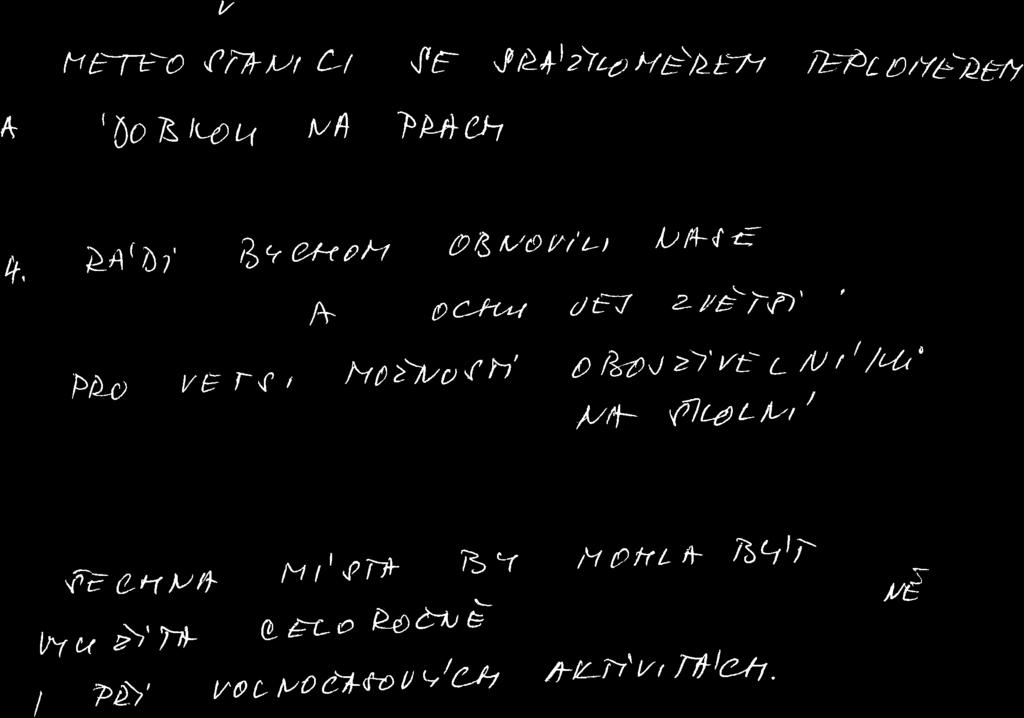 V
METEO STANICI SE SRÁŽKOMĚREM TEPLOMĚREM
A DOBKOU NA PRACH
4. RÁDI BYCHOM OBNOVILI NAŠE
A OCHU VEJ ZVĚTŠI
PRO VETSI MOŽNOSTI
NA ŠKOLNÍ
ŠECHNA MÍSTA BY MOHLA BÝT
NĚ
VYUŽITA CELOROČNĚ
I PŘI VOLNOČASOVÝCH AKTIVITÁCH.